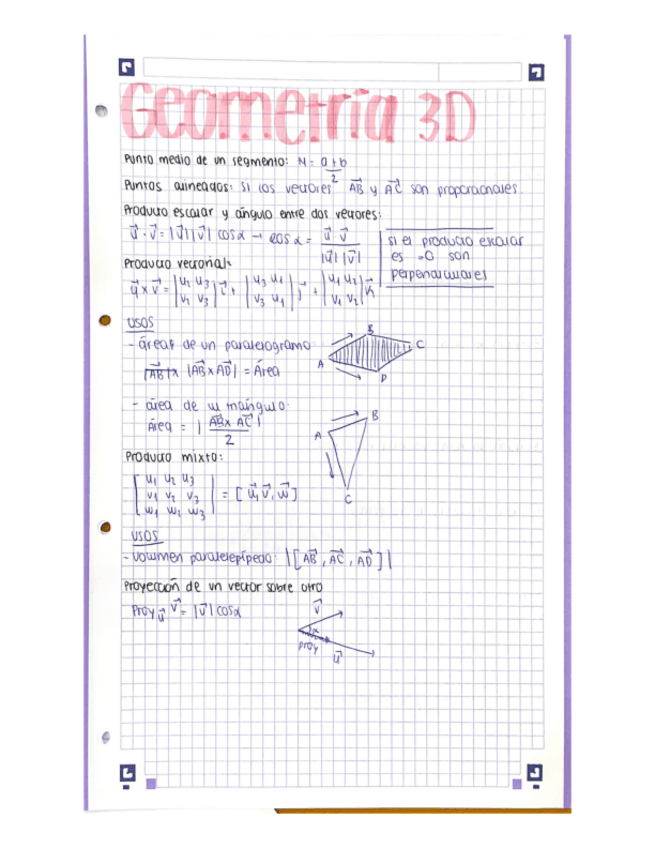 Geometría 3D
Punto medio de un segmento: M = a+b / 2
Puntos alineados: si los vectores AB y AC son proporcionales.
Producto escalar y ángulo entre dos vectores:
u⃗ · v⃗ = |u⃗| |v⃗| cos α → cos α = u⃗ v⃗ / |u⃗| |v⃗|
si el producto escalar
es =0 son
perpendiculares
Producto vectorial:
u⃗ x v⃗ = |u₂ u₃ / v₂ v₃| i⃗ + |u₃ u₁ / v₃ v₁| j⃗ + |u₁ u₂ / v₁ v₂| k⃗
USOS
- áreas de un paralelogramo:
|AB x AD| = Área
A B C D
- área de un triángulo:
Área = |AB x AC| / 2
A B C
Producto mixto:
u₁ u₂ u₃
v₁ v₂ v₃
w₁ w₂ w₃
= [u⃗, v⃗, w⃗]
USOS
- volumen paralelepípedo: |[AB, AC, AD]|
Proyección de un vector sobre otro
Proy u⃗ v⃗ = |v⃗| cos α
v⃗
α
proy
u⃗